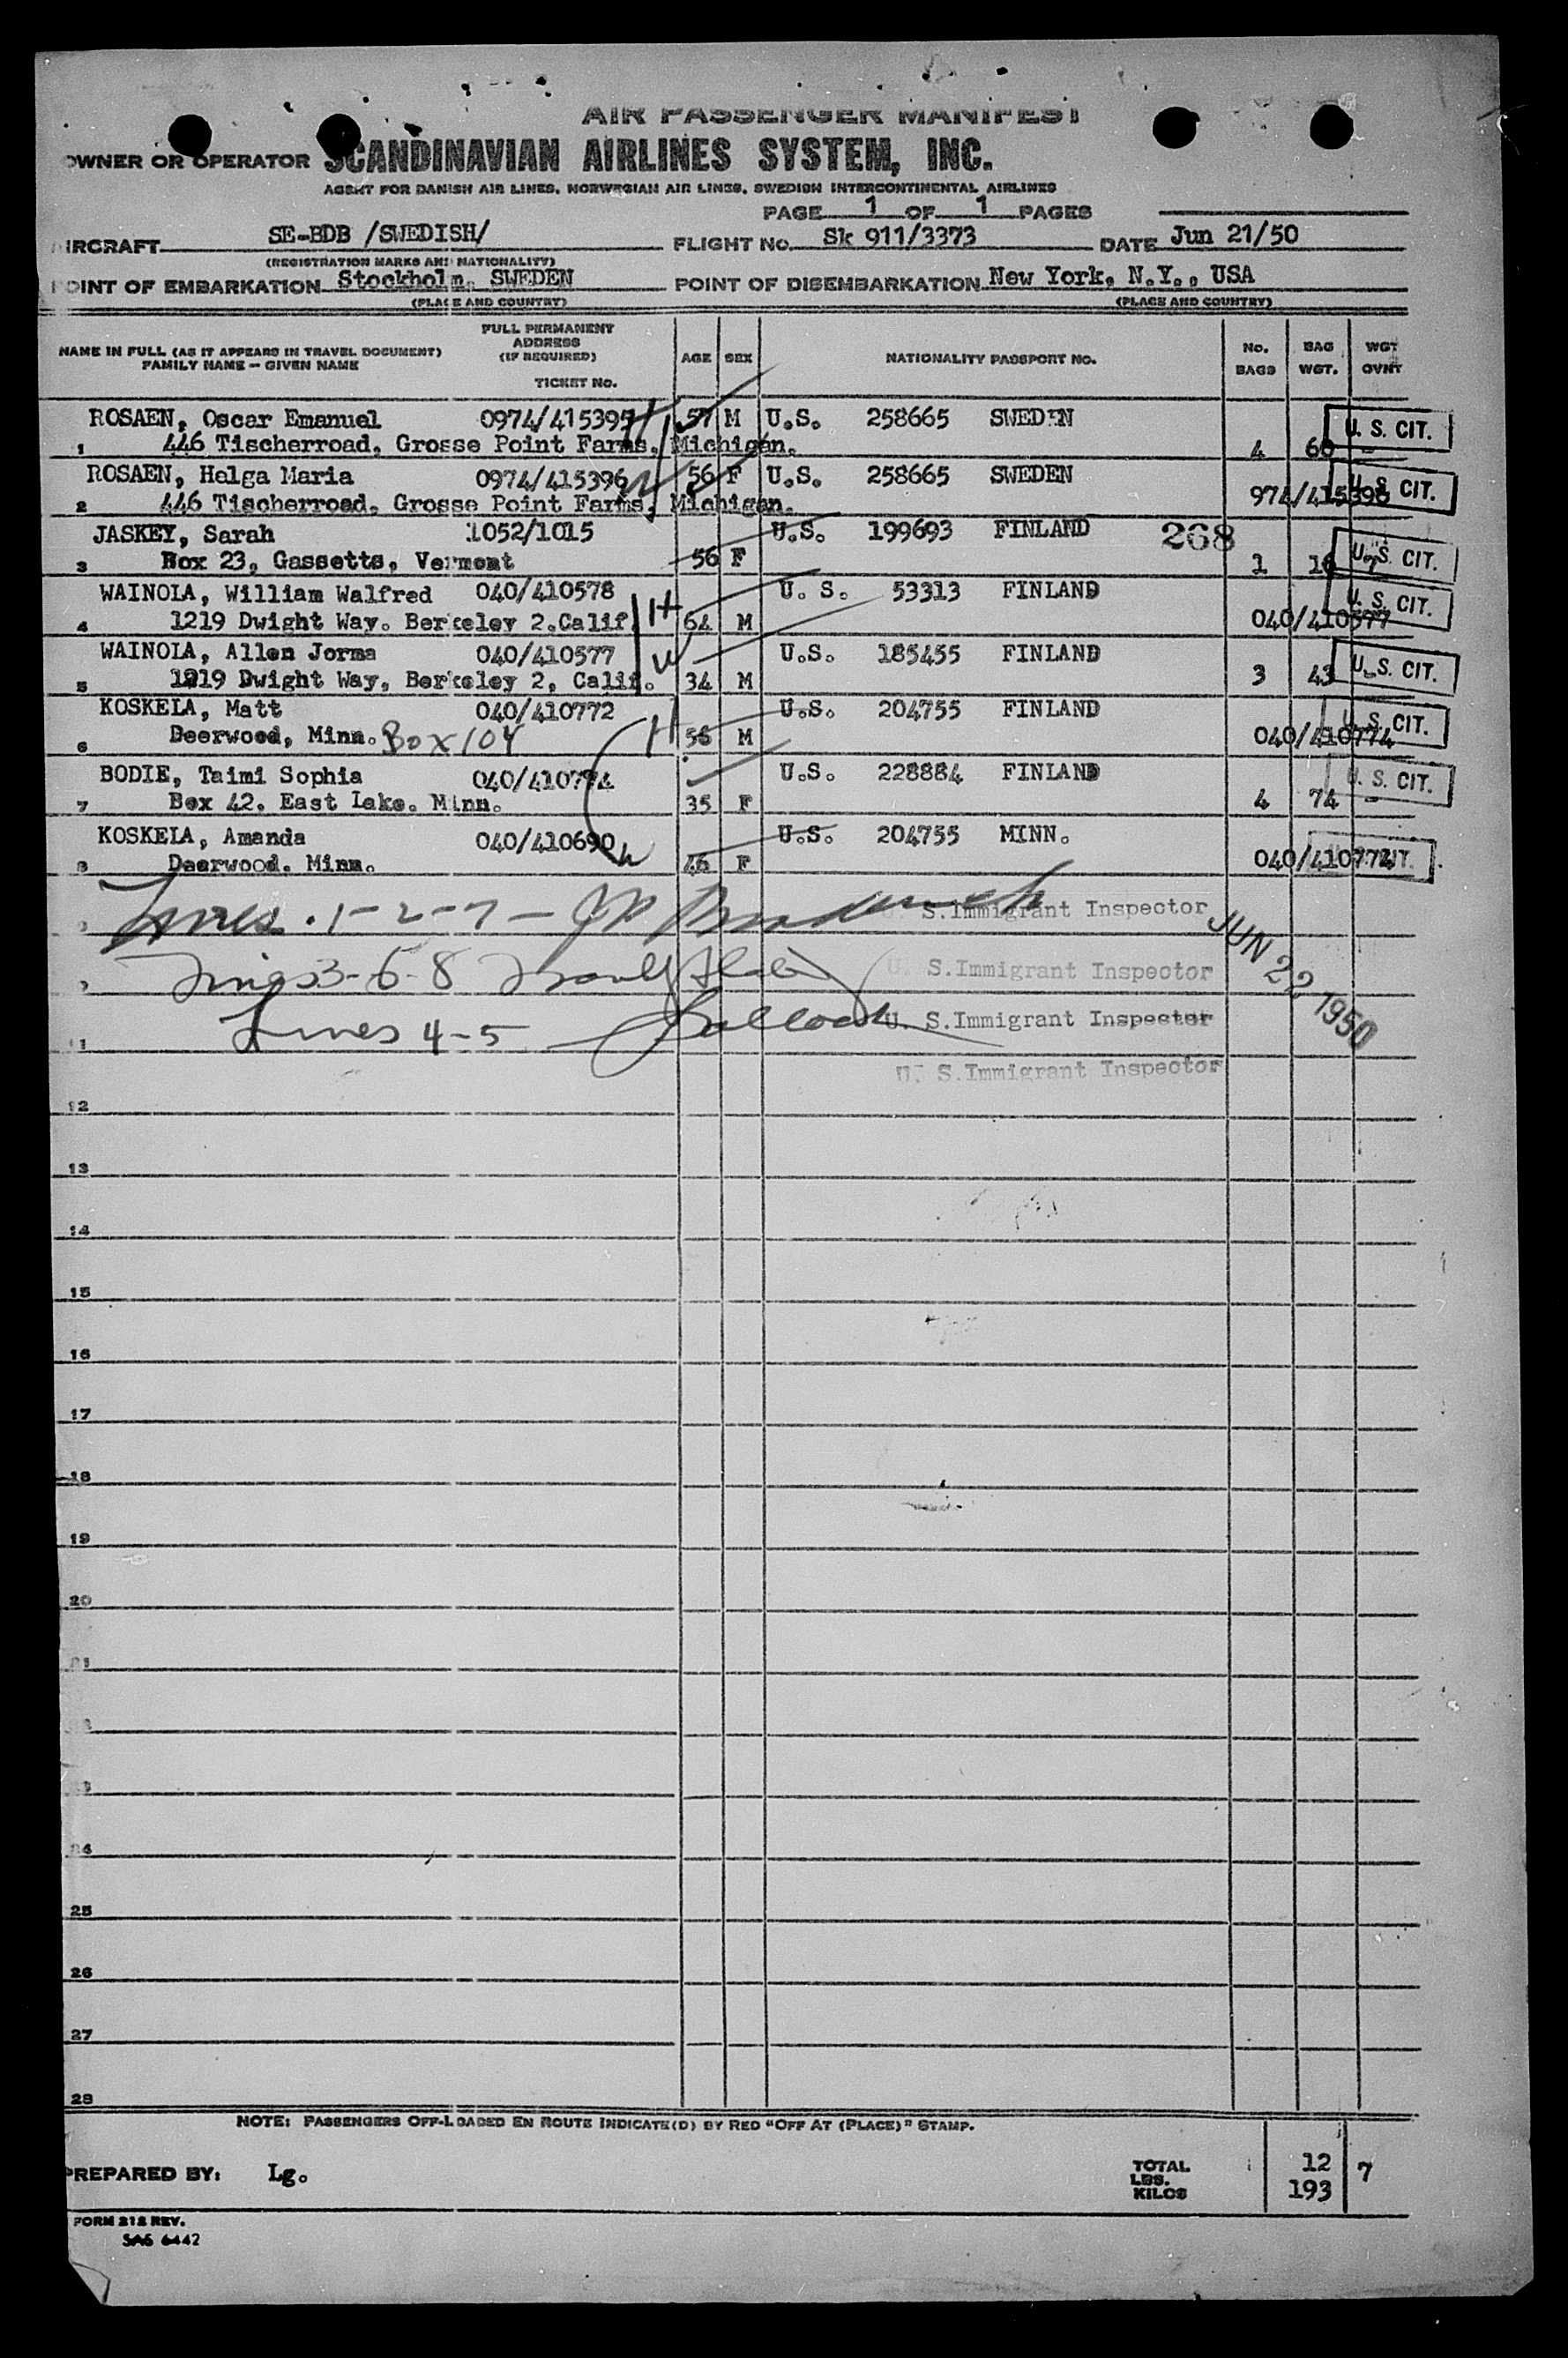 AIR PASSENGER MANIFEST
OWNER OR OPERATOR SCANDINAVIAN AIRLINES SYSTEM, INC.
AGENT FOR DANISH AIR LINES, NORWEGIAN AIR LINES, SWEDISH INTERCONTINENTAL AIRLINES
PAGE 1 OF 1 PAGES
AIRCRAFT SE-BDB /SWEDISH/ FLIGHT NO. Sk 911/3373 DATE Jun 21/50
(REGISTRATION MARKS AND NATIONALITY)
POINT OF EMBARKATION Stockholm, SWEDEN POINT OF DISEMBARKATION New York, N.Y., USA
(PLACE AND COUNTRY) (PLACE AND COUNTRY)
NAME IN FULL (AS IT APPEARS IN TRAVEL DOCUMENT) FAMILY NAME — GIVEN NAME FULL PERMANENT ADDRESS (IF REQUIRED) TICKET NO. AGE SEX NATIONALITY PASSPORT NO. NO. BAGS BAG WGT. WGT OVNT
ROSAEN, Oscar Emanuel 0974/415395 H 57 M U.S. 258665 SWEDEN U. S. CIT.
1 446 Tischerroad, Grosse Point Farms, Michigan. 4 60 -
ROSAEN, Helga Maria 0974/415396 W 56 F U.S. 258665 SWEDEN U. S. CIT.
2 446 Tischerroad, Grosse Point Farms, Michigan. 974/415396
JASKEY, Sarah 1052/1015 U.S. 199693 FINLAND 268 U. S. CIT.
3 Box 23, Gassetts, Vermont 56 F 1 16
WAINOLA, William Walfred 040/410578 H U. S. 53313 FINLAND U. S. CIT.
4 1219 Dwight Way. Berkeley 2.Calif. 64 M 040/410577
WAINOLA, Allen Jorma 040/410577 W U.S. 185455 FINLAND U. S. CIT.
5 1219 Dwight Way, Berkeley 2, Calif. 34 M 3 43 -
KOSKELA, Matt 040/410772 H U.S. 204755 FINLAND U. S. CIT.
6 Deerwood, Minn. Box 104 56 M 040/410774
BODIE, Taimi Sophia 040/410774 U.S. 228884 FINLAND U. S. CIT.
7 Box 42. East Lake. Minn. 35 F 4 74 -
KOSKELA, Amanda 040/410690 W U.S. 204755 MINN.
8 Deerwood. Minn. 46 F 040/410774 CIT.
Lines . 1-2-7- U. S.Immigrant Inspector
JUN 22 1950
Lines 3-6-8 U. S.Immigrant Inspector
11 Lines 4-5 U. S.Immigrant Inspector
U. S.Immigrant Inspector
12
13
14
15
16
17
18
19
20
21
24
25
26
27
28
NOTE: PASSENGERS OFF-LOADED EN ROUTE INDICATE(D) BY RED "OFF AT (PLACE)" STAMP.
PREPARED BY: Lg. TOTAL 12 7
LBS.
KILOS 193
FORM 212 REV.
SAS 6442